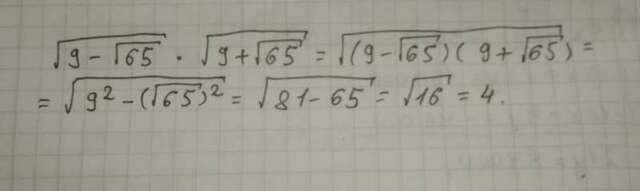 √(9 − √65) · √(9 + √65) = √((9 − √65)(9 + √65)) =
= √(9² − (√65)²) = √(81 − 65) = √16 = 4.